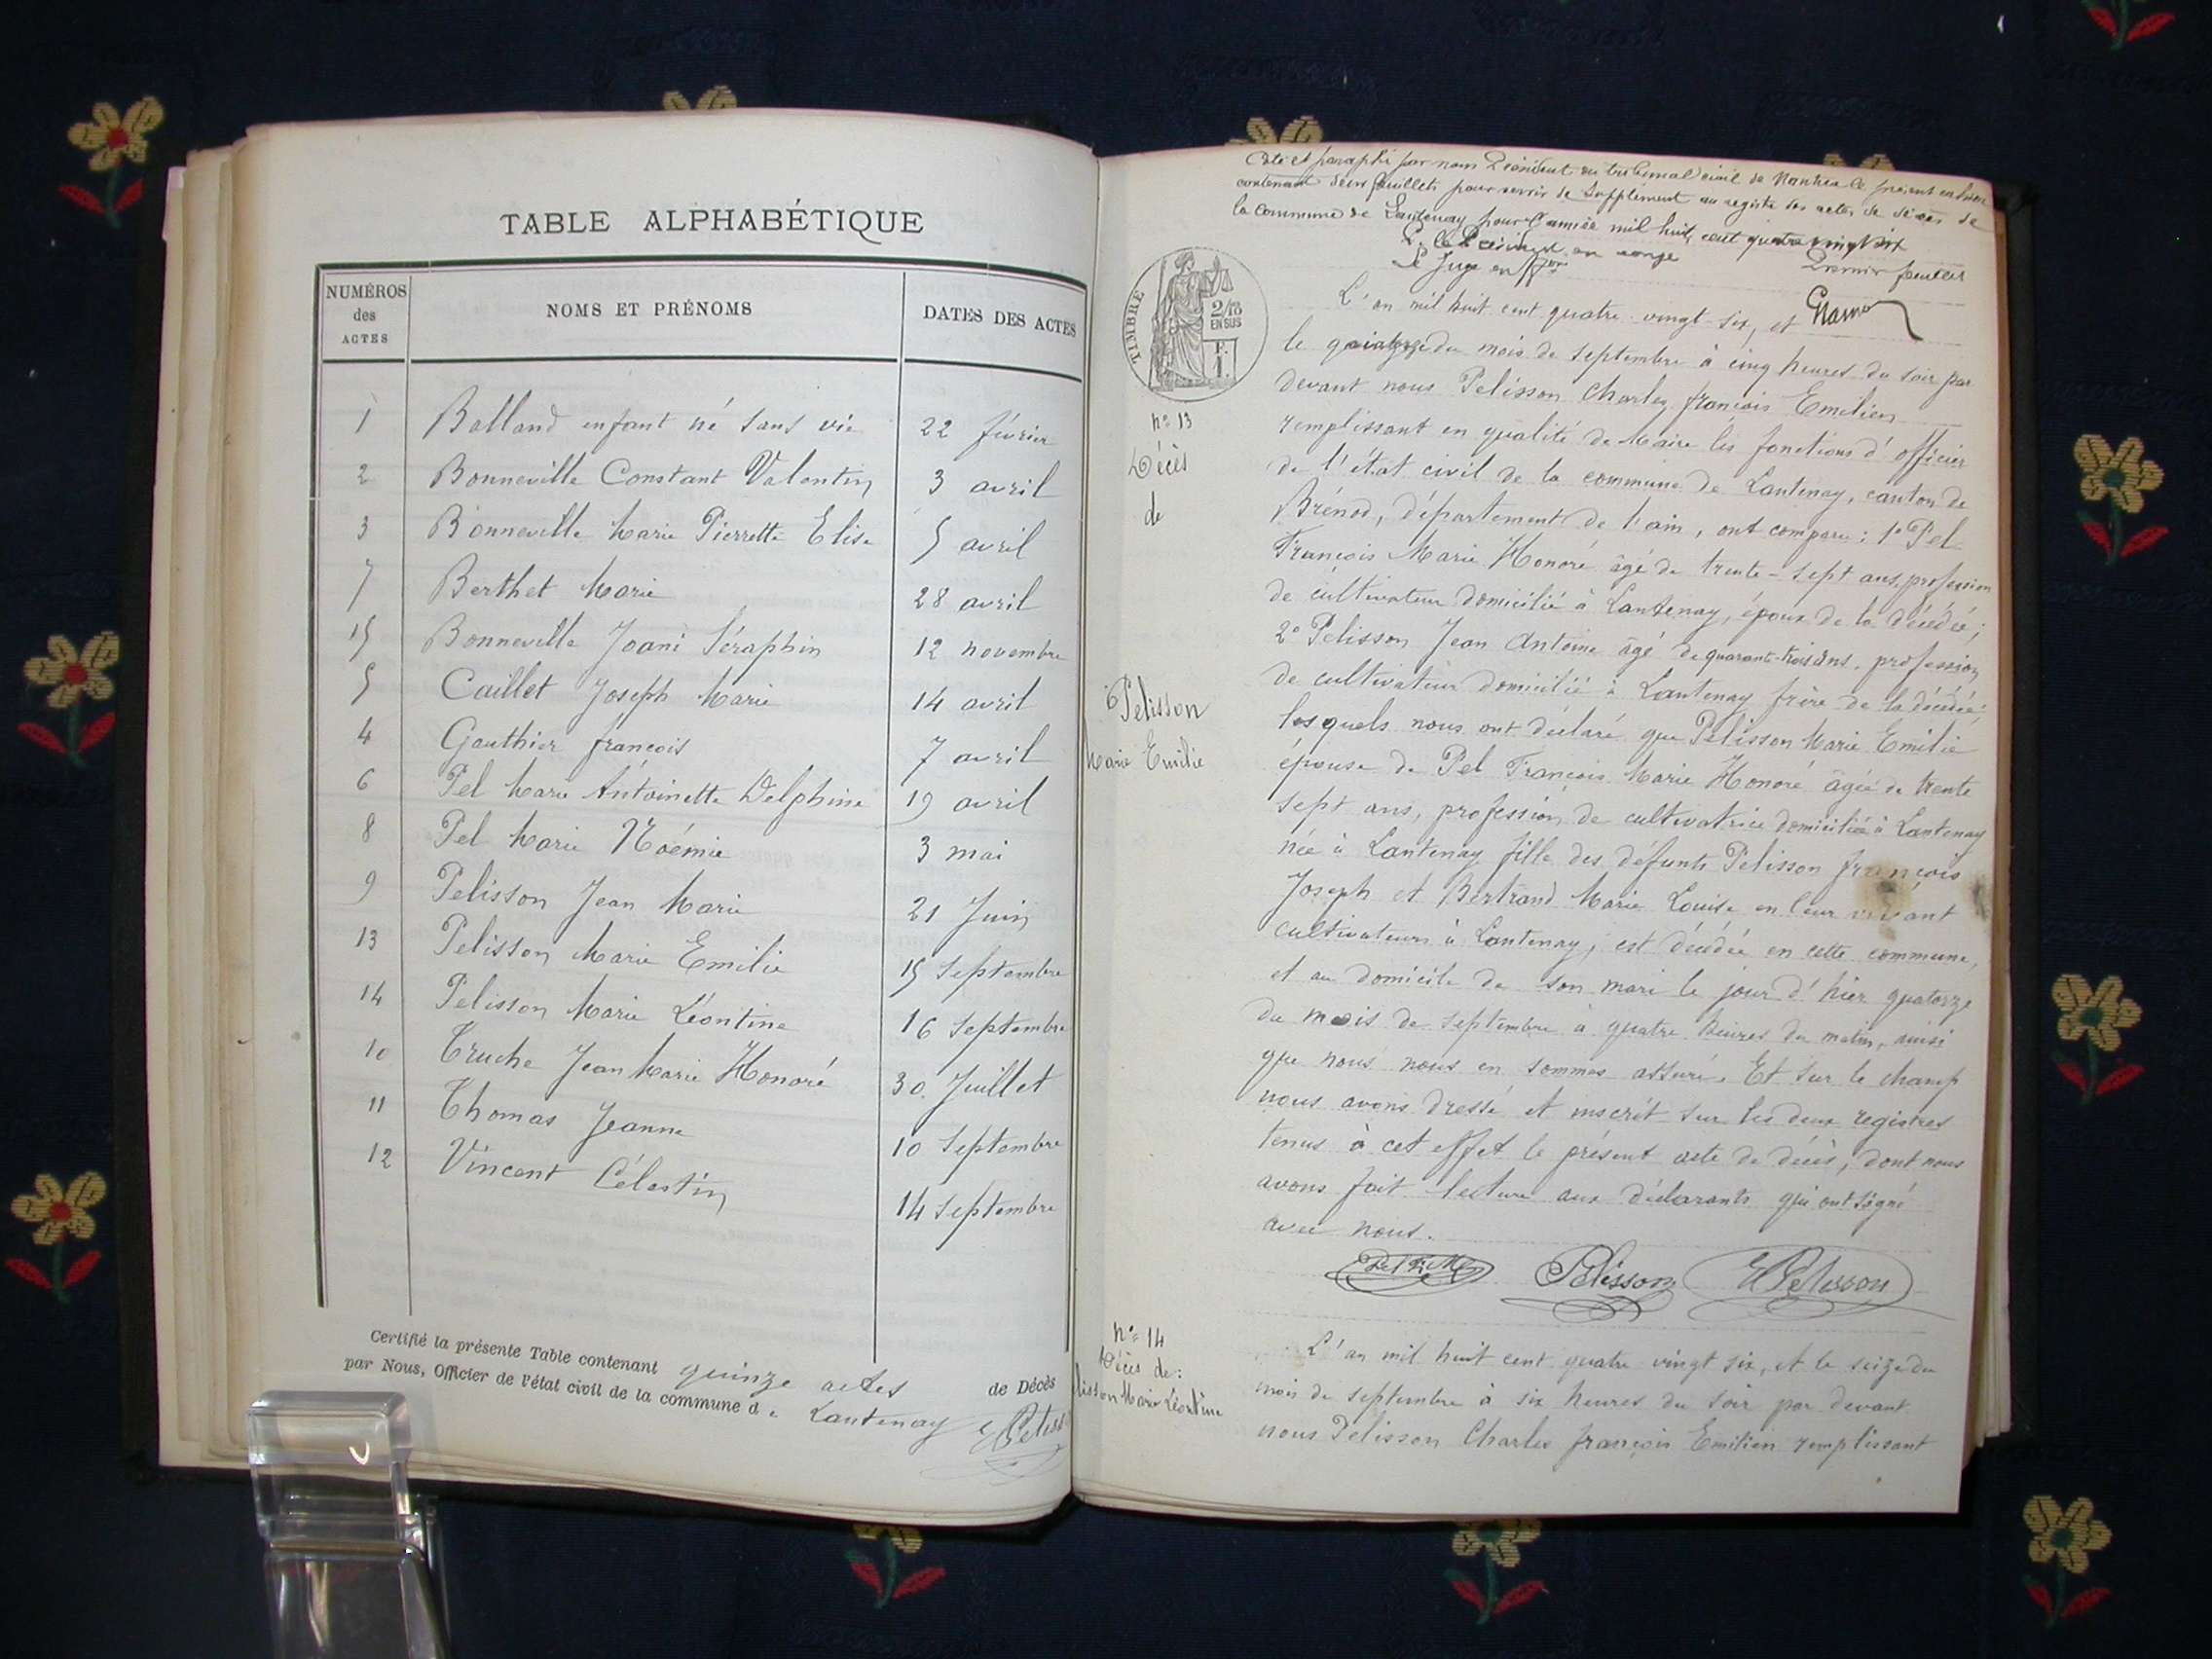 TABLE ALPHABÉTIQUE
NUMÉROS des ACTES
NOMS ET PRÉNOMS
DATES DES ACTES
1 Balland enfant né sans vie 22 février
2 Bonneville Constant Valentin 3 avril
3 Bonneville Marie Pierrette Elise 5 avril
7 Berthet Marie 28 avril
15 Bonneville Joani Séraphin 12 novembre
5 Caillet Joseph Marie 14 avril
4 Gauthier françois 7 avril
6 Pel Marie Antoinette Delphine 19 avril
8 Pel Marie Noémie 3 mai
9 Pelisson Jean Marie 21 Juin
13 Pelisson Marie Emilie 15 Septembre
14 Pelisson Marie Léontine 16 Septembre
10 Truche Jean Marie Honoré 30 Juillet
11 Thomas Jeanne 10 Septembre
12 Vincent Célestin 14 Septembre
Certifié la présente Table contenant quinze actes de Décès
par Nous, Officier de l'état civil de la commune de Lantenay
Coté et paraphé par nous Président du tribunal civil de Nantua le présent
contenant deux feuillets pour servir de Supplément au registre des actes de décès de
la commune de Lantenay pour l'année mil huit cent quatre vingt six
P. le Président en congé
Le Juge en Premier feuillet
TIMBRE
2/10
EN SUS
F.
1.
L'an mil huit cent quatre vingt-six, et
le quinze du mois de septembre à cinq heures du soir par
devant nous Pelisson Charles françois Emilien
remplissant en qualité de Maire les fonctions d'officier
de l'état civil de la commune de Lantenay, canton de
Brénod, département de l'ain, ont comparu: 1º Pel
François Marie Honoré âgé de trente-sept ans, profession
de cultivateur domicilié à Lantenay, époux de la décédée;
2º Pelisson Jean Antoine âgé de quarante-trois ans, profession
de cultivateur domicilié à Lantenay frère de la décédée;
lesquels nous ont déclaré que Pelisson Marie Emilie
épouse de Pel François Marie Honoré âgée de trente
sept ans, profession de cultivatrice domiciliée à Lantenay
née à Lantenay fille des défunts Pelisson françois
Joseph et Bertrand Marie Louise en leur vivant
cultivateurs à Lantenay, est décédée en cette commune,
et au domicile de son mari le jour d'hier quatorze
du mois de septembre à quatre heures du matin, ainsi
que nous nous en sommes assuré. Et sur le champ
nous avons dressé et inscrit sur les deux registres
tenus à cet effet le présent acte de décès, dont nous
avons fait lecture aux déclarants qui ont signé
avec nous.
nº 13
Décès
de
Pelisson
Marie Emilie
Pelisson E Pelisson
nº 14
Décès de:
Marie Léontine
L'an mil huit cent quatre vingt six, et le seize du
mois de septembre à six heures du soir par devant
nous Pelisson Charles françois Emilien remplissant